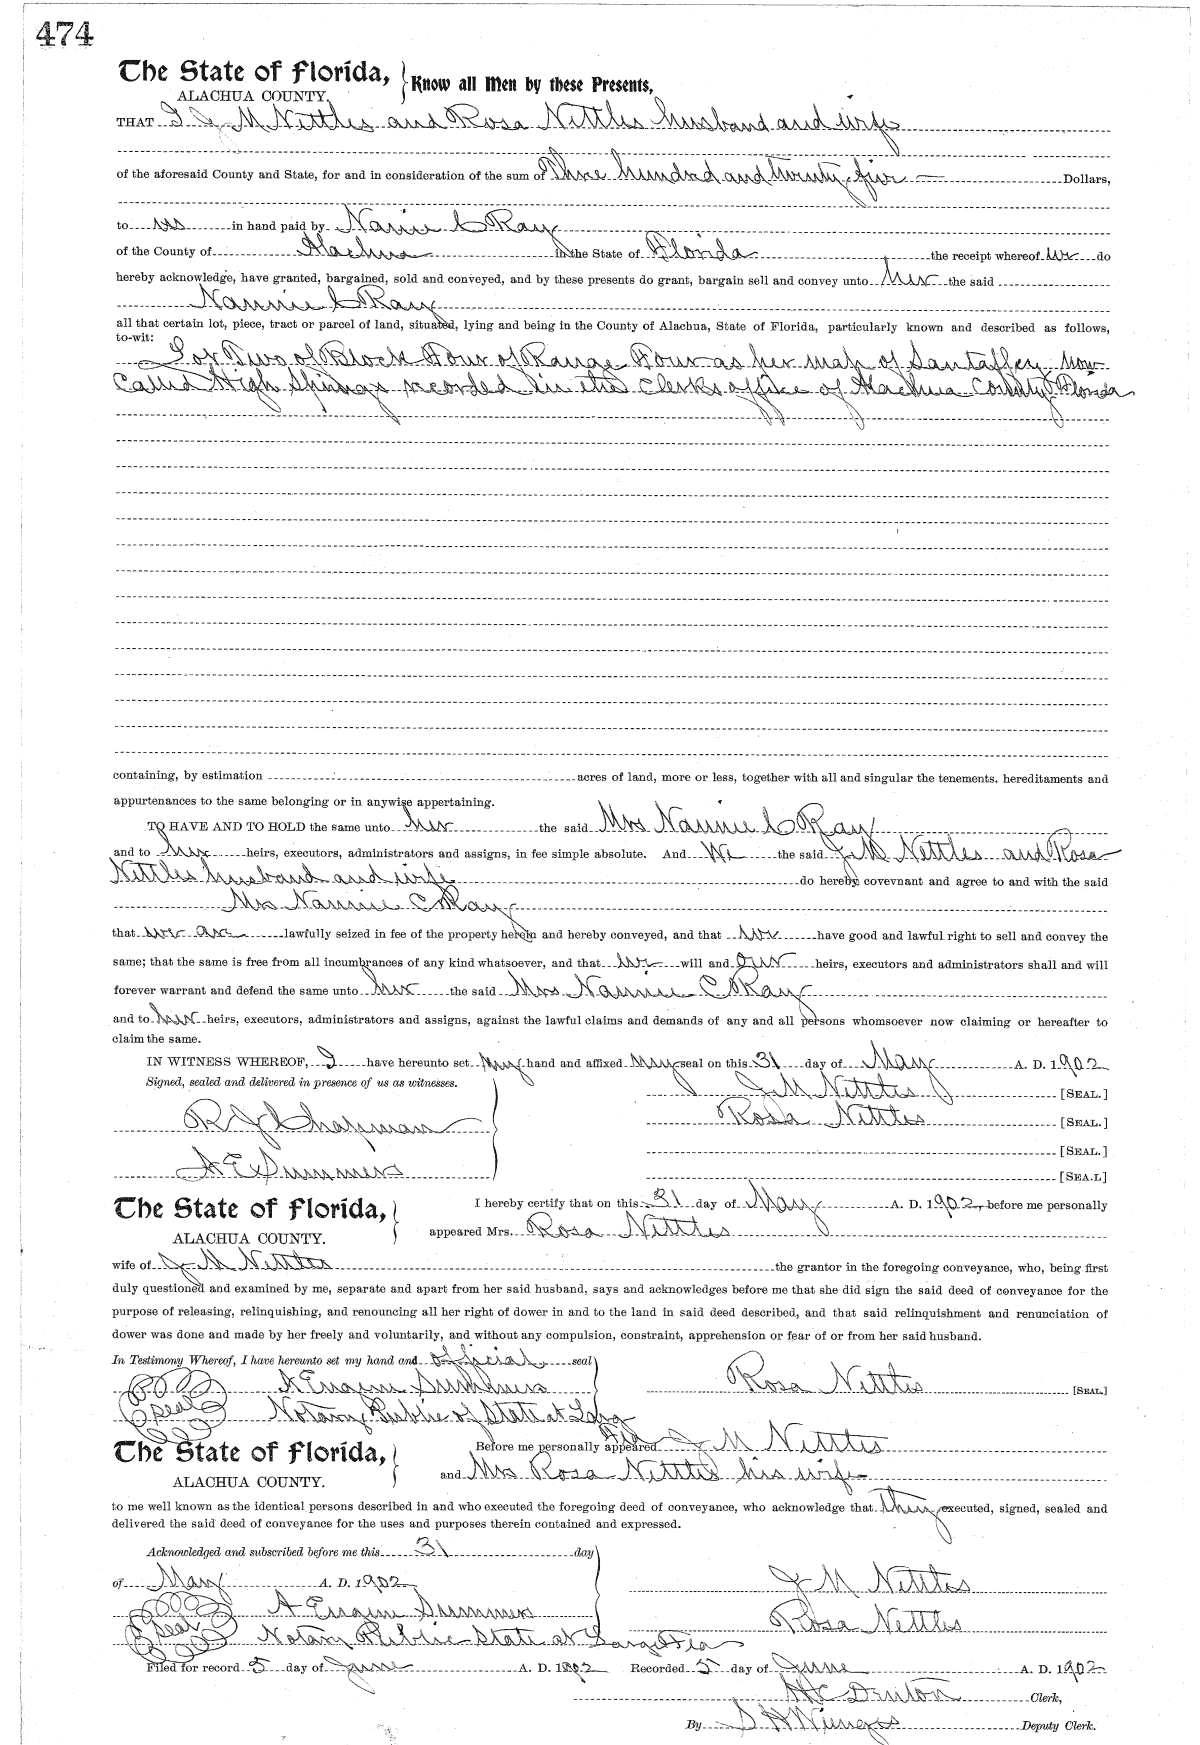 474
The State of Florida,
ALACHUA COUNTY.
Know all Men by these Presents,
THAT I J M Nettles and Rosa Nettles husband and wife
of the aforesaid County and State, for and in consideration of the sum of Three hundred and twenty five Dollars,
to us in hand paid by Nanie C Ray
of the County of Alachua in the State of Florida the receipt whereof we do
hereby acknowledge, have granted, bargained, sold and conveyed, and by these presents do grant, bargain sell and convey unto her the said
Nannie C Ray
all that certain lot, piece, tract or parcel of land, situated, lying and being in the County of Alachua, State of Florida, particularly known and described as follows,
to-wit:
Lot Two of Block Four of Range Four as per map of Santaffey now
Called High Springs recorded in the Clerks office of Alachua County Florida
containing, by estimation acres of land, more or less, together with all and singular the tenements, hereditaments and
appurtenances to the same belonging or in anywise appertaining.
TO HAVE AND TO HOLD the same unto her the said Mrs Nannie C Ray
and to her heirs, executors, administrators and assigns, in fee simple absolute. And We the said J M Nettles and Rosa
Nettles husband and wife do hereby covevnant and agree to and with the said
Mrs Nannie C Ray
that we are lawfully seized in fee of the property herein and hereby conveyed, and that we have good and lawful right to sell and convey the
same; that the same is free from all incumbrances of any kind whatsoever, and that we will and our heirs, executors and administrators shall and will
forever warrant and defend the same unto her the said Mrs Nannie C Ray
and to her heirs, executors, administrators and assigns, against the lawful claims and demands of any and all persons whomsoever now claiming or hereafter to
claim the same.
IN WITNESS WHEREOF, I have hereunto set my hand and affixed my seal on this 31 day of May A. D. 1902
Signed, sealed and delivered in presence of us as witnesses.
J M Nettles [SEAL.]
R J Chapman
Rosa Nettles [SEAL.]
[SEAL.]
A E Summers
[SEA.L]
The State of Florida,
ALACHUA COUNTY.
I hereby certify that on this 31 day of May A. D. 1902 before me personally
appeared Mrs. Rosa Nettles
wife of J M Nettles the grantor in the foregoing conveyance, who, being first
duly questioned and examined by me, separate and apart from her said husband, says and acknowledges before me that she did sign the said deed of conveyance for the
purpose of releasing, relinquishing, and renouncing all her right of dower in and to the land in said deed described, and that said relinquishment and renunciation of
dower was done and made by her freely and voluntarily, and without any compulsion, constraint, apprehension or fear of or from her said husband.
In Testimony Whereof, I have hereunto set my hand and official seal
A Eugene Summers Rosa Nettles [SEAL]
seal Notary Public of State at Large
Fla
The State of Florida,
ALACHUA COUNTY.
Before me personally appeared J M Nettles
and Mrs Rosa Nettles his wife
to me well known as the identical persons described in and who executed the foregoing deed of conveyance, who acknowledge that They executed, signed, sealed and
delivered the said deed of conveyance for the uses and purposes therein contained and expressed.
Acknowledged and subscribed before me this 31 day
of May A. D. 1902 J M Nettles
A Eugene Summers
seal Rosa Nettles
Notary Public State at Large Fla
Filed for record 5 day of June A. D. 1902 Recorded 5 day of June A. D. 1902
H C Denton Clerk,
By S H Wienges Deputy Clerk.